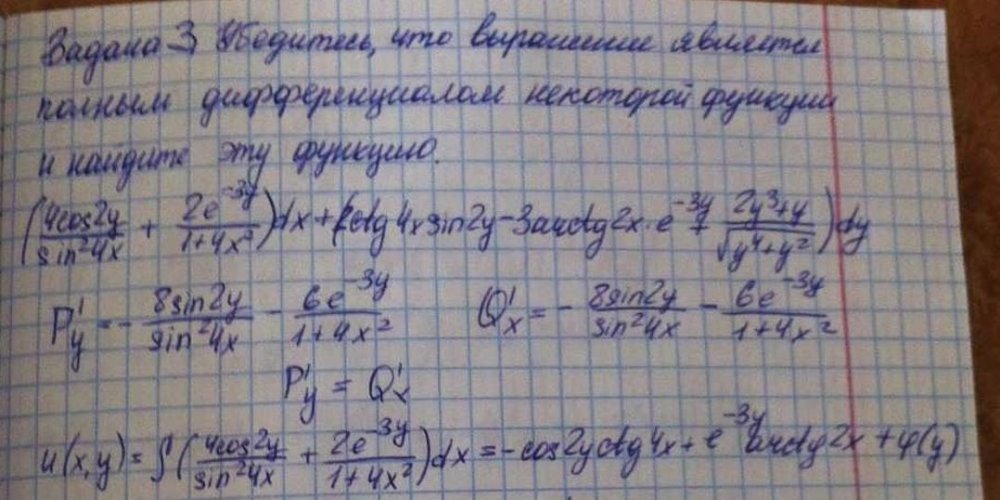 Задача 3. Убедитесь, что выражение является
полным дифференциалом некоторой функции
и найдите эту функцию.
(4cos2y/sin²4x + 2e^(-3y)/(1+4x²))dx + (2ctg4x sin2y - 3arctg2x · e^(-3y) + (2y³+y)/√(y⁴+y²))dy
P'y = - 8sin2y/sin²4x - 6e^(-3y)/(1+4x²) Q'x = - 8sin2y/sin²4x - 6e^(-3y)/(1+4x²)
P'y = Q'x
u(x,y) = ∫(4cos2y/sin²4x + 2e^(-3y)/(1+4x²))dx = -cos2y ctg4x + e^(-3y) arctg2x + φ(y)